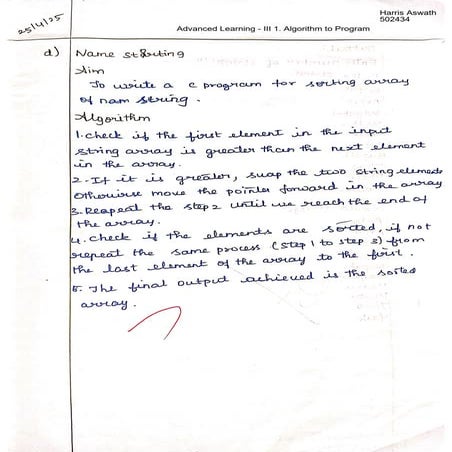 Harris Aswath
502434
25/4/25
Advanced Learning - III 1. Algorithm to Program
d) Name storting
Aim
To write a c program for sorting array
of nam string.
Algorithm
1. check if the first element in the input
string array is greater than the next element
in the array.
2. If it is greater, swap the two string elements
otherwise move the pointer forward in the array
3. Reapeat the step 2 until we reach the end of
the array.
4. check if the elements are sorted, if not
repeat the same process (step 1 to step 3) from
the last element of the array to the first.
5. The final output achieved is the sorted
array.